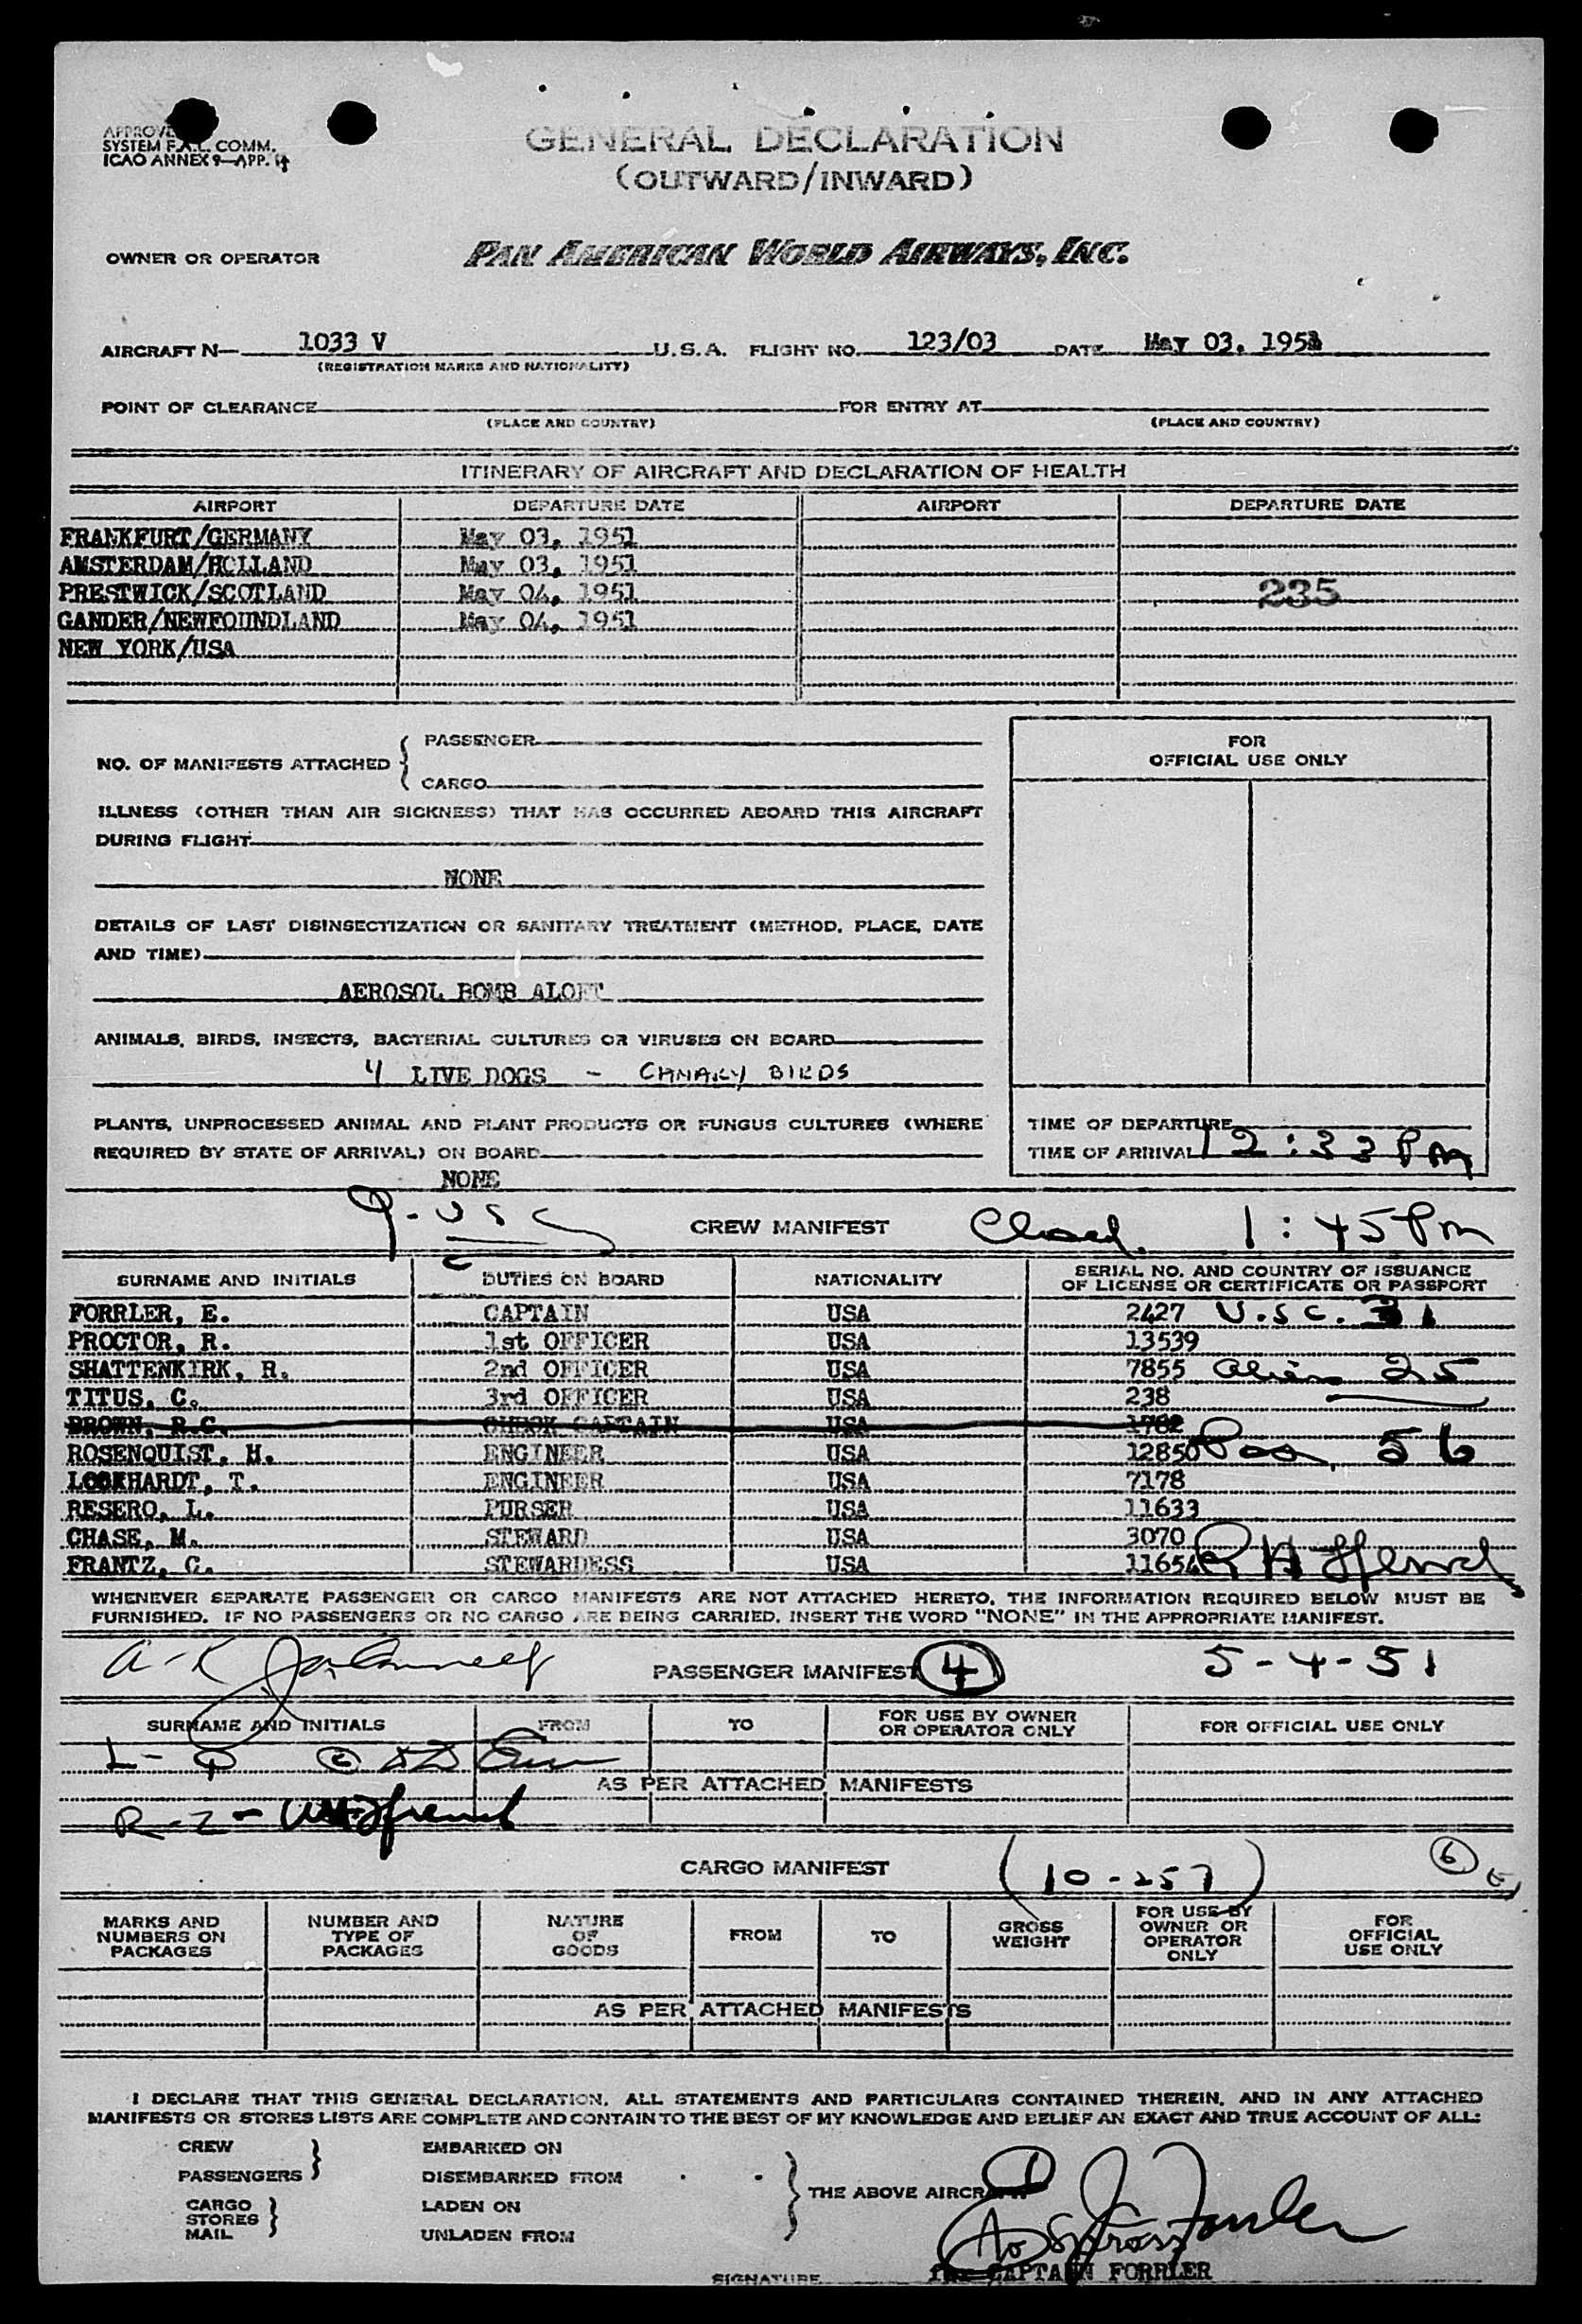 SYSTEM F.A.L. COMM.
ICAO ANNEX 9—APP.
GENERAL DECLARATION
(OUTWARD/INWARD)
OWNER OR OPERATOR PAN AMERICAN WORLD AIRWAYS, INC.
AIRCRAFT N— 1033 V U.S.A. FLIGHT NO. 123/03 DATE May 03, 1951
(REGISTRATION MARKS AND NATIONALITY)
POINT OF CLEARANCE FOR ENTRY AT
(PLACE AND COUNTRY) (PLACE AND COUNTRY)
ITINERARY OF AIRCRAFT AND DECLARATION OF HEALTH
AIRPORT DEPARTURE DATE AIRPORT DEPARTURE DATE
FRANKFURT/GERMANY May 03, 1951
AMSTERDAM/HOLLAND May 03, 1951
PRESTWICK/SCOTLAND May 04, 1951 235
GANDER/NEWFOUNDLAND May 04, 1951
NEW YORK/USA
NO. OF MANIFESTS ATTACHED { PASSENGER
CARGO
FOR
OFFICIAL USE ONLY
ILLNESS (OTHER THAN AIR SICKNESS) THAT HAS OCCURRED ABOARD THIS AIRCRAFT
DURING FLIGHT
NONE
DETAILS OF LAST DISINSECTIZATION OR SANITARY TREATMENT (METHOD, PLACE, DATE
AND TIME)
AEROSOL BOMB ALOFT
ANIMALS, BIRDS, INSECTS, BACTERIAL CULTURES OR VIRUSES ON BOARD
4 LIVE DOGS - CANARY BIRDS
PLANTS, UNPROCESSED ANIMAL AND PLANT PRODUCTS OR FUNGUS CULTURES (WHERE
REQUIRED BY STATE OF ARRIVAL) ON BOARD
NONE
TIME OF DEPARTURE
TIME OF ARRIVAL 12:33 PM
9-USC CREW MANIFEST Closed. 1:45 Pm
SURNAME AND INITIALS DUTIES ON BOARD NATIONALITY SERIAL NO. AND COUNTRY OF ISSUANCE
OF LICENSE OR CERTIFICATE OR PASSPORT
FORRLER, E. CAPTAIN USA 2427 U.S.C. 31
PROCTOR, R. 1st OFFICER USA 13539
SHATTENKIRK, R. 2nd OFFICER USA 7855 Alien 25
TITUS, C. 3rd OFFICER USA 238
BROWN, R.C. CHECK CAPTAIN USA 1762
ROSENQUIST, H. ENGINEER USA 12850 Pas. 56
LOCKHARDT, T. ENGINEER USA 7178
RESERO, L. PURSER USA 11633
CHASE, M. STEWARD USA 3070
FRANTZ, C. STEWARDESS USA 11654
WHENEVER SEPARATE PASSENGER OR CARGO MANIFESTS ARE NOT ATTACHED HERETO, THE INFORMATION REQUIRED BELOW MUST BE
FURNISHED. IF NO PASSENGERS OR NO CARGO ARE BEING CARRIED, INSERT THE WORD "NONE" IN THE APPROPRIATE MANIFEST.
A-K PASSENGER MANIFEST 4 5-4-51
SURNAME AND INITIALS FROM TO FOR USE BY OWNER
OR OPERATOR ONLY FOR OFFICIAL USE ONLY
AS PER ATTACHED MANIFESTS
R-Z-
CARGO MANIFEST (10-257) 6
MARKS AND
NUMBERS ON
PACKAGES
NUMBER AND
TYPE OF
PACKAGES
NATURE
OF
GOODS
FROM
TO
GROSS
WEIGHT
FOR USE BY
OWNER OR
OPERATOR
ONLY
FOR
OFFICIAL
USE ONLY
AS PER ATTACHED MANIFESTS
I DECLARE THAT THIS GENERAL DECLARATION, ALL STATEMENTS AND PARTICULARS CONTAINED THEREIN, AND IN ANY ATTACHED
MANIFESTS OR STORES LISTS ARE COMPLETE AND CONTAIN TO THE BEST OF MY KNOWLEDGE AND BELIEF AN EXACT AND TRUE ACCOUNT OF ALL:
CREW EMBARKED ON
PASSENGERS DISEMBARKED FROM
THE ABOVE AIRCRAFT
CARGO LADEN ON
STORES
MAIL UNLADEN FROM
SIGNATURE for CAPTAIN FORRLER